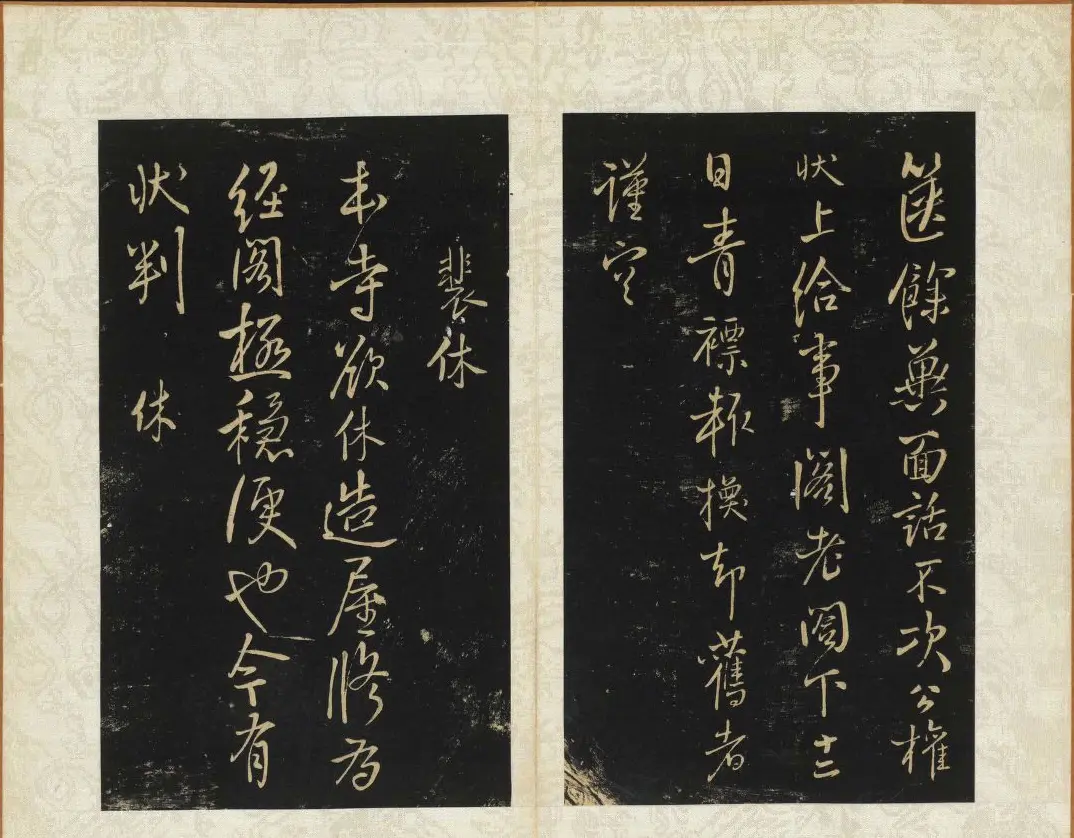 篋餘兼面話不次公權
狀上給事閣老閤下十二
日青褾報換却舊者
謹空
裴休
本寺欲休造屋修為
經閣極穩便也今有
狀判 休